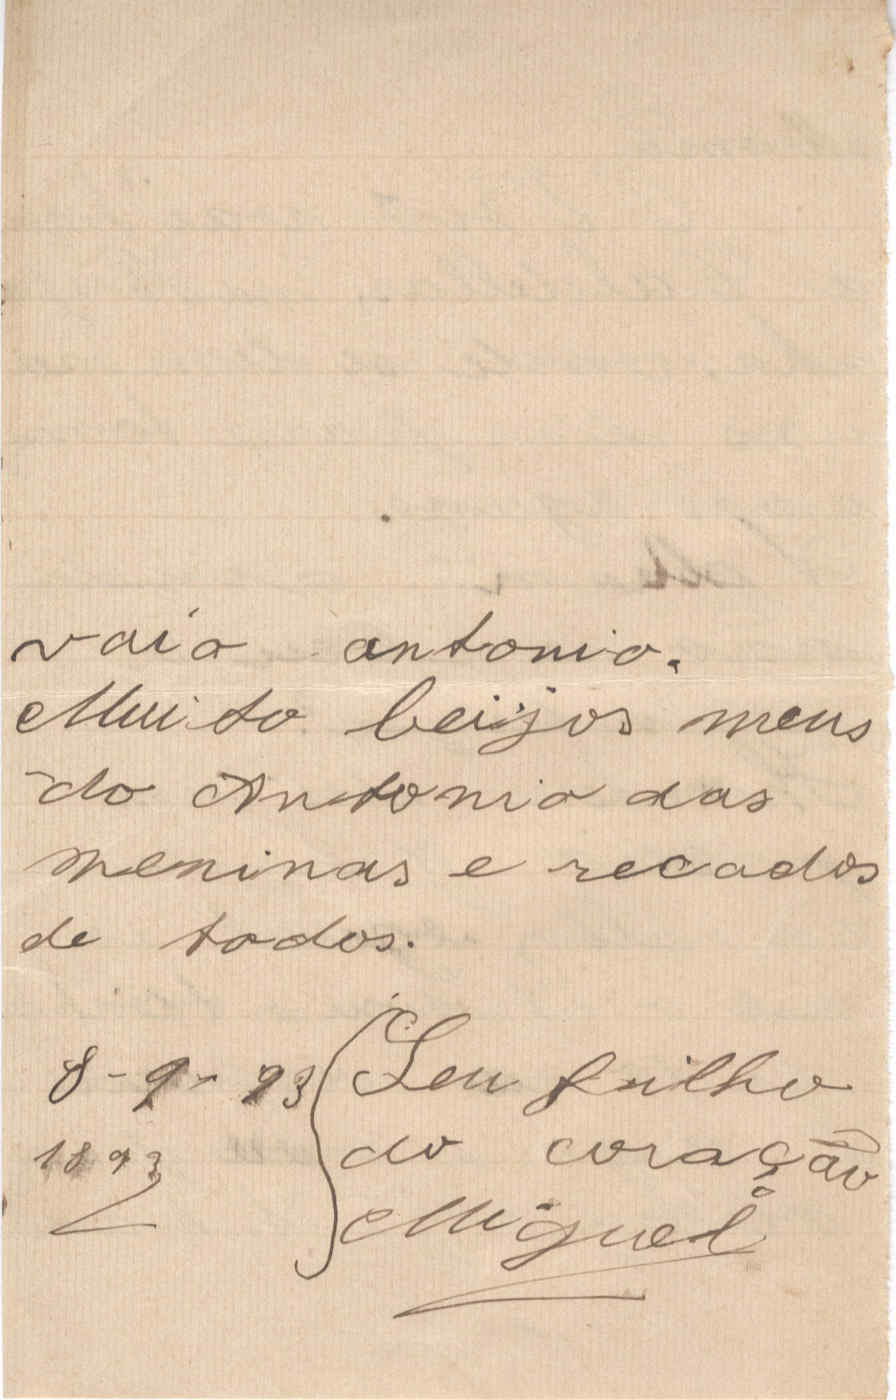 vaia antonio.
Muito beijos meus
do Antonio das
meninas e recados
de todos.
8-9-93
1893
Seu filho
do coração
Miguel